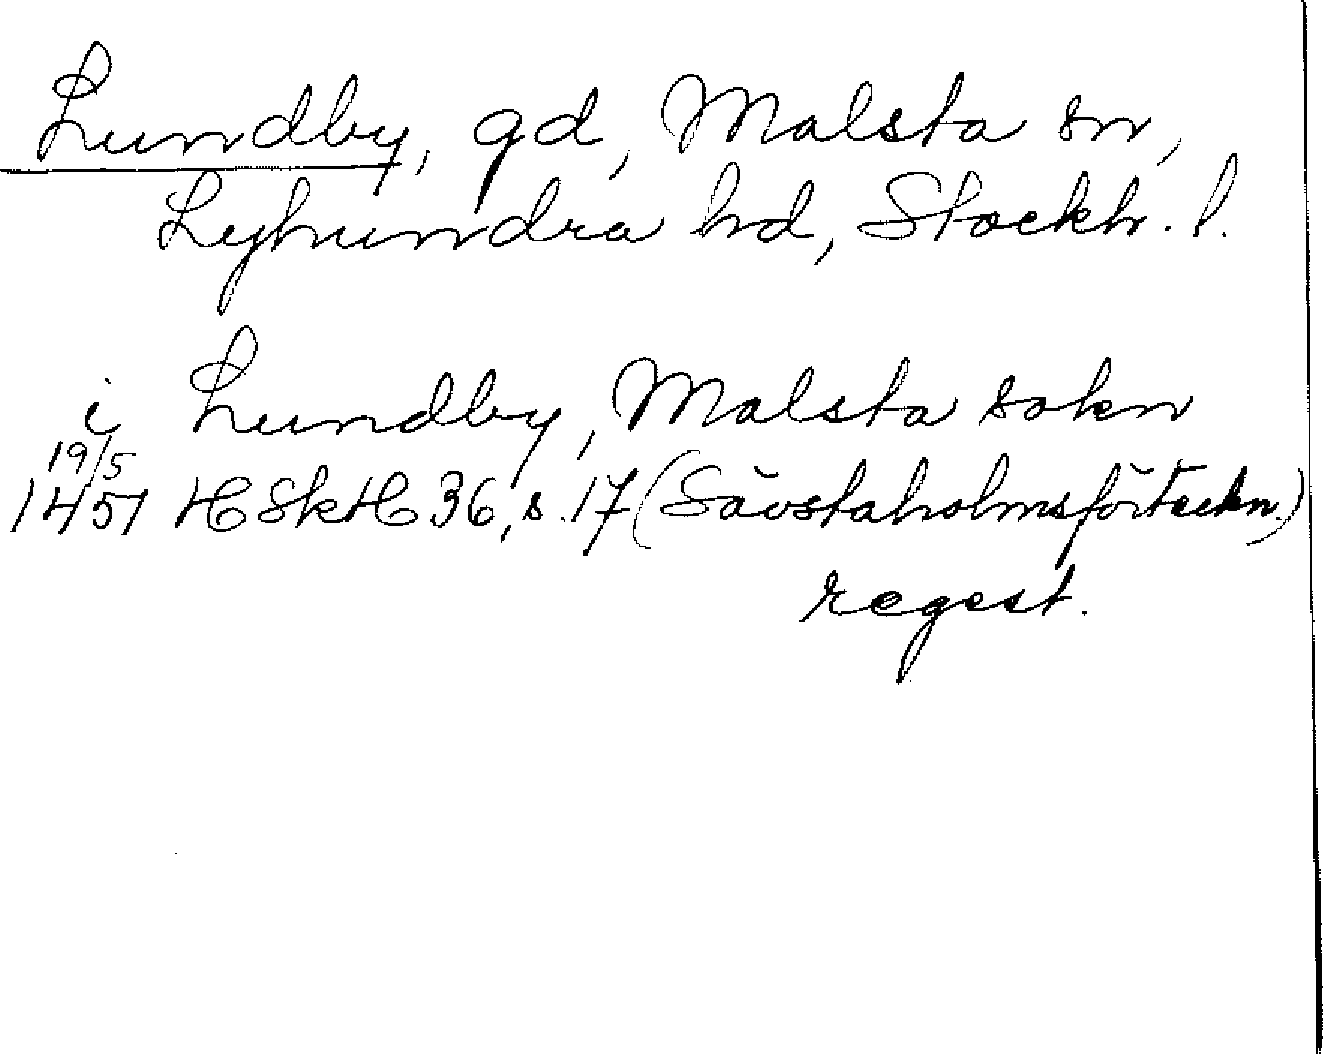 Lundby, gd, Malsta sn,
Lyhundra hd, Stockh. l.
i Lundby, Malsta sokn
19/5
1451 HSkH 36, s. 17 (Sävstaholmsförteckn.)
regest.